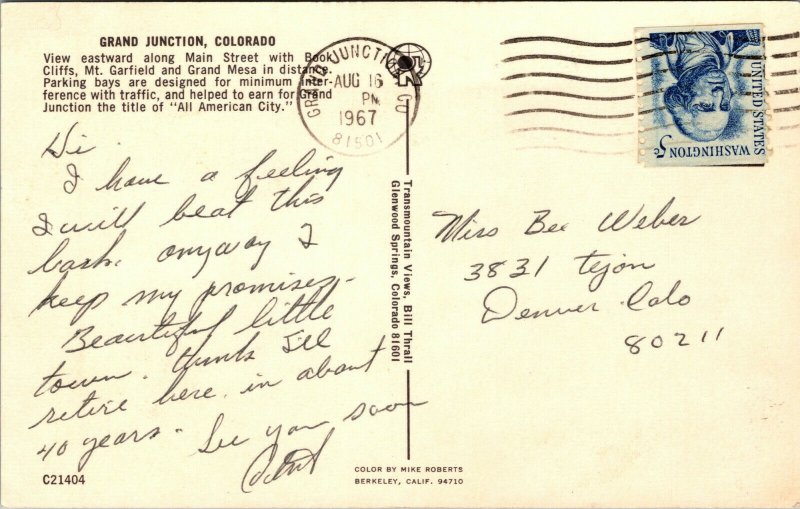 GRAND JUNCTION, COLORADO
View eastward along Main Street with Book
Cliffs, Mt. Garfield and Grand Mesa in distance.
Parking bays are designed for minimum inter-
ference with traffic, and helped to earn for Grand
Junction the title of "All American City."
GRAND JUNCTION CO
AUG 16
PM
1967
81501
UNITED STATES
WASHINGTON 5c
Hi.
I have a feeling
I will beat this
back. anyway I
keep my promises.
Beautiful little
town. think I'll
retire here in about
40 years. See you soon
Miss Bee Weber
3831 Tejon
Denver Colo
80211
Transmountain Views, Bill Thrall
Glenwood Springs, Colorado 81601
C21404
COLOR BY MIKE ROBERTS
BERKELEY, CALIF. 94710